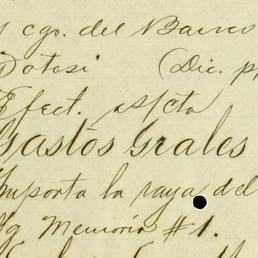 cgo. del Banco
Potosi (Dic. p
Efect. s/cta
Gastos Grales
Importa la raya del
Memoria #1.